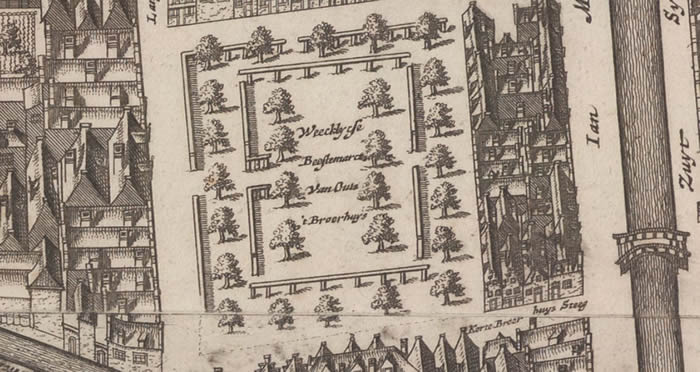 Weecklyese
Beestemarct
Van Outs
't Broerhuys
Ian
Zuyt
huys Steeg
Korte Broer